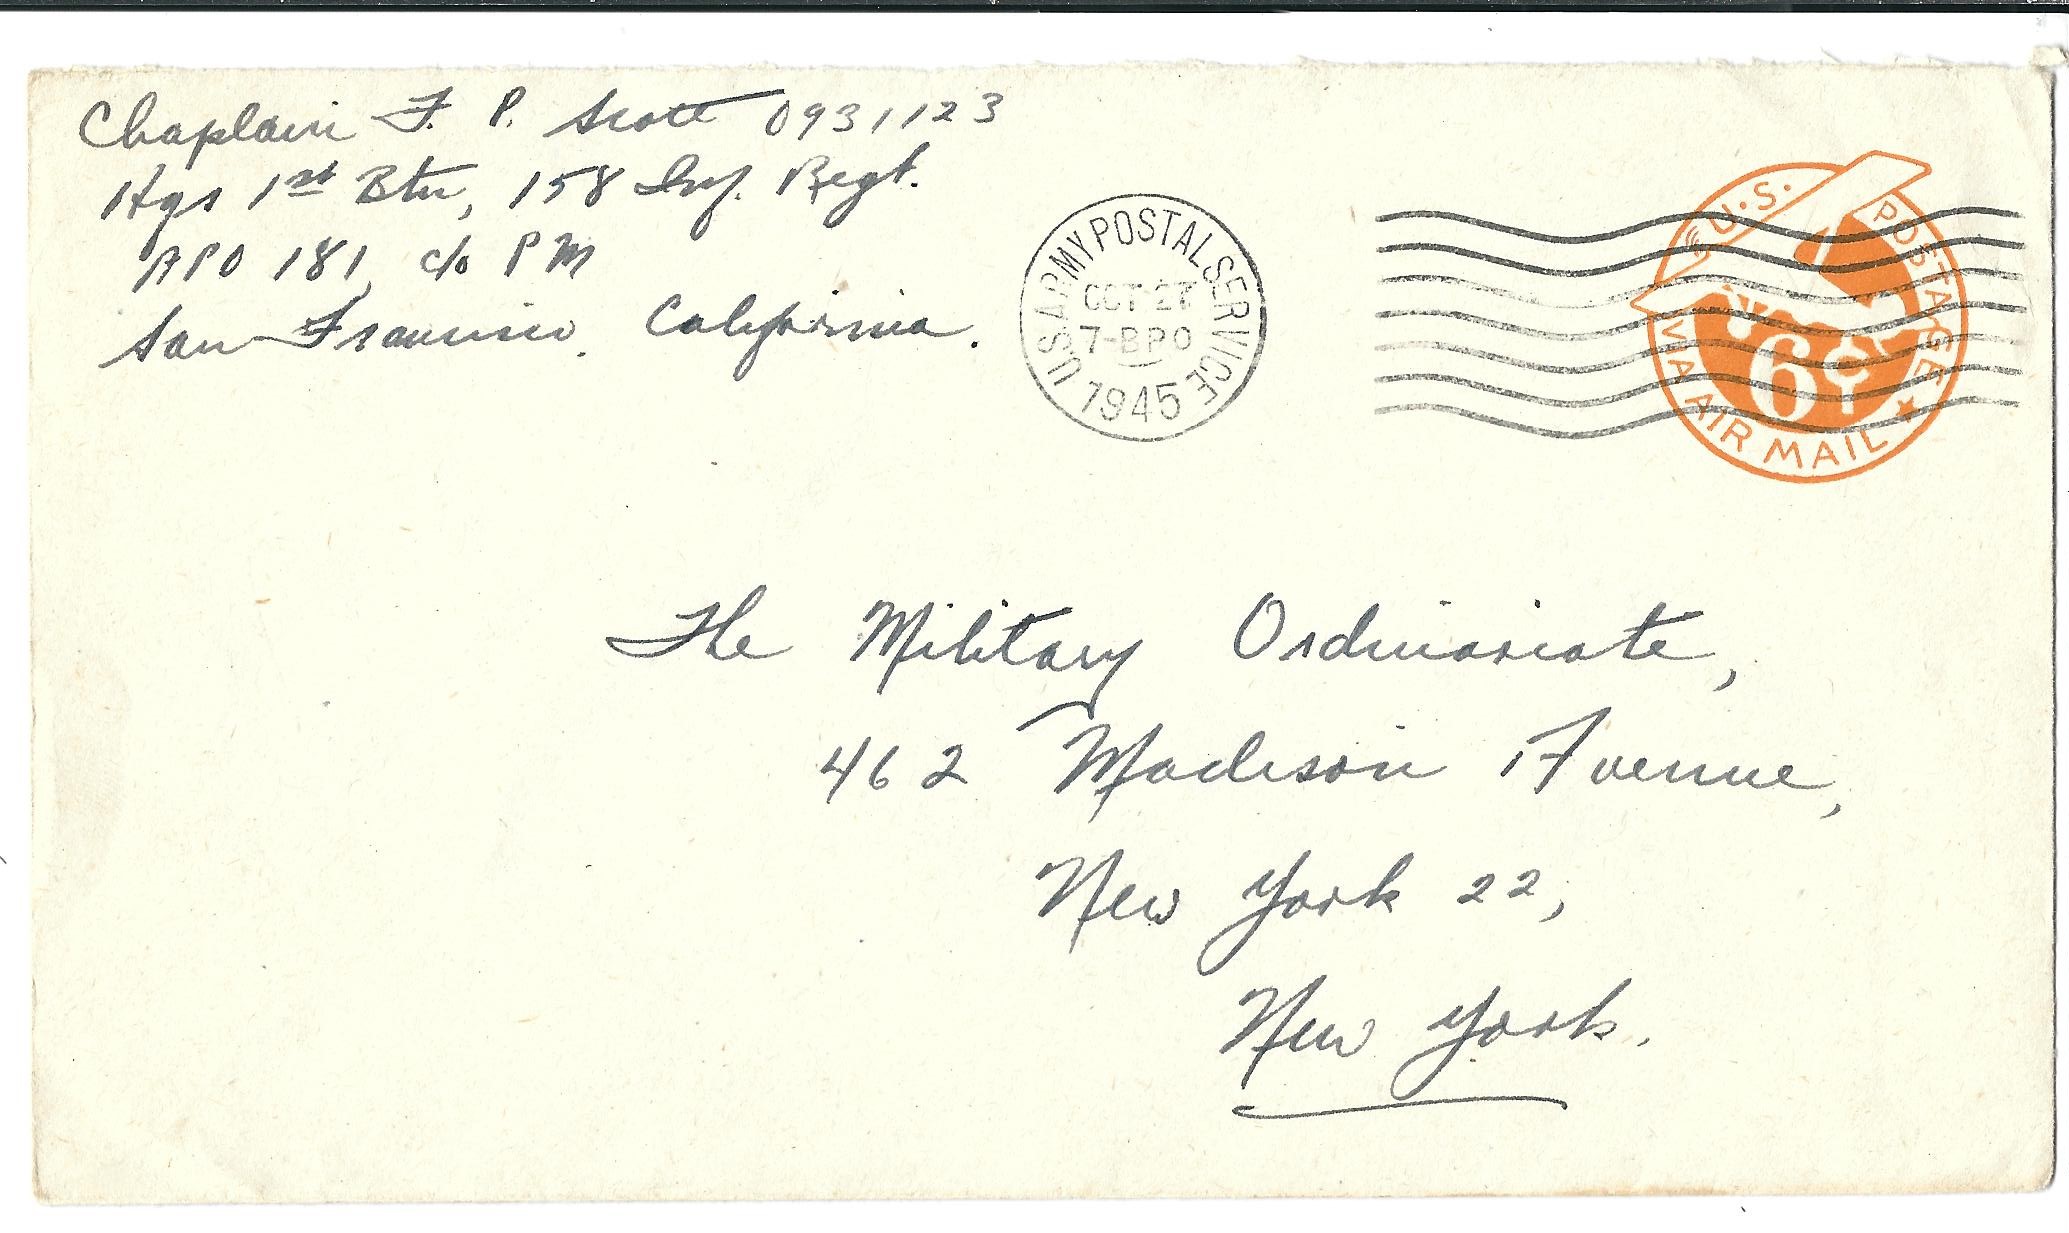 Chaplain F. P. Scott 0931123
Hqs 1st Btn, 158 Inf. Regt.
APO 181, c/o PM
San Francisco, California.
US ARMY POSTAL SERVICE
OCT 27
7-BPO
1945
U.S. POSTAGE
6¢
VIA AIR MAIL
The Military Ordinariate,
462 Madison Avenue,
New York 22,
New York.